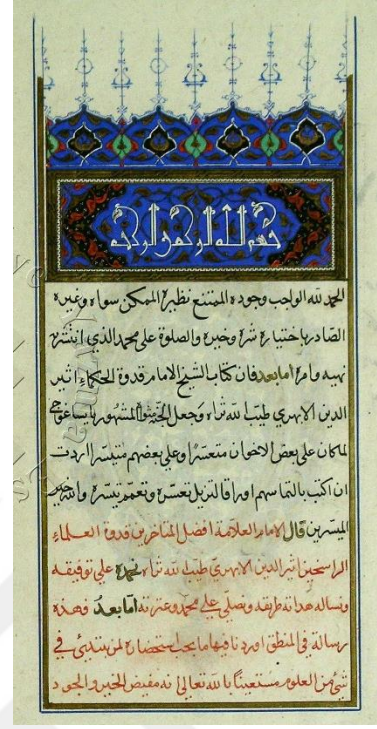 بسم الله الرحمن الرحيم
الحمد لله الواجب وجوده الممتنع نظيره الممكن سواه وغيره
الصادر باختياره شره وخيره والصلوة على محمد الذي انتشر
نهيه وامره اما بعد فان كتاب الشيخ الامام قدوة الحكماء اثير
الدين الابهري طيب الله ثراه وجعل الجنة مثواه المشهور بايساغوجي
لما كان على بعض الاخوان متعسرا وعلى بعضهم متيسرا اردت
ان اكتب بالتماسهم اوراقا لتزيل تعسره وتعمم تيسره والله خير
الميسرين قال الامام العلامة افضل المتاخرين قدوة العلماء
الراسخين اثير الدين الابهري طيب الله ثراه نحمده على توفيقه
ونساله هداية طريقه ونصلي على محمد وعترته اما بعد فهذه
رسالة في المنطق اوردنا فيها ما يجب استحضاره لمن يبتدئ في
شئ من العلوم مستعينا بالله تعالى انه مفيض الخير والجود